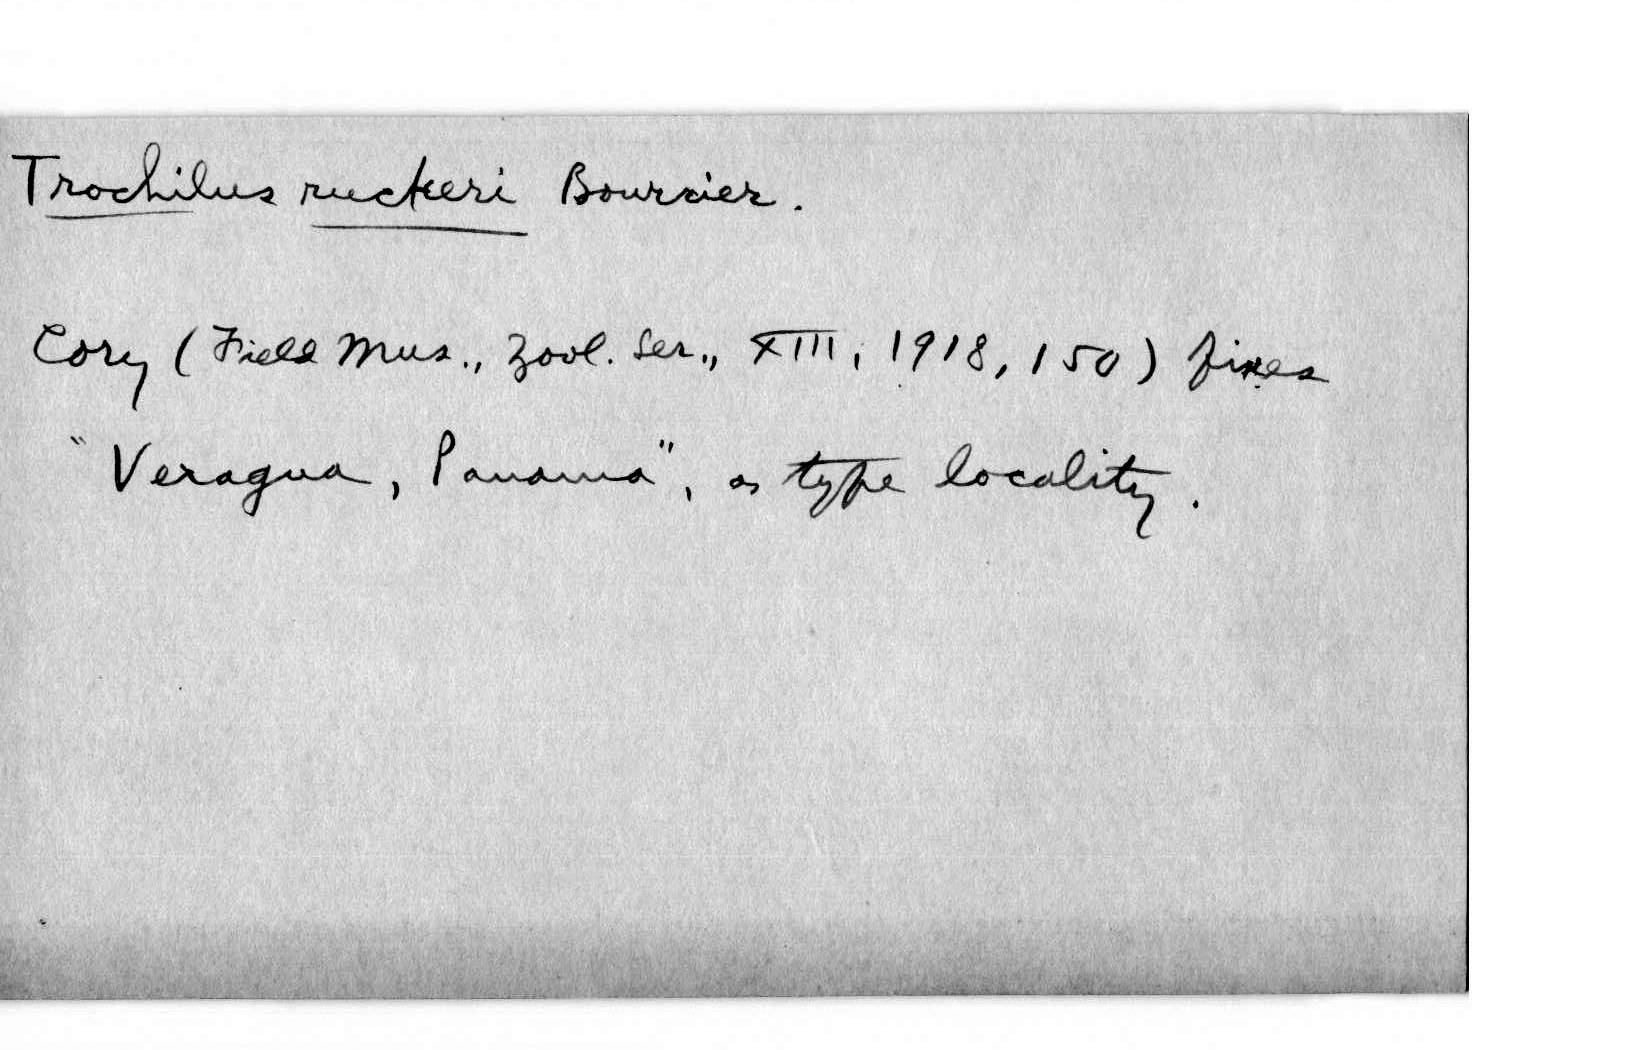 Trochilus ruckeri Bourcier.
Cory (Field Mus., Zool. Ser., XIII, 1918, 150) fixes
"Veragua, Panama", as type locality.